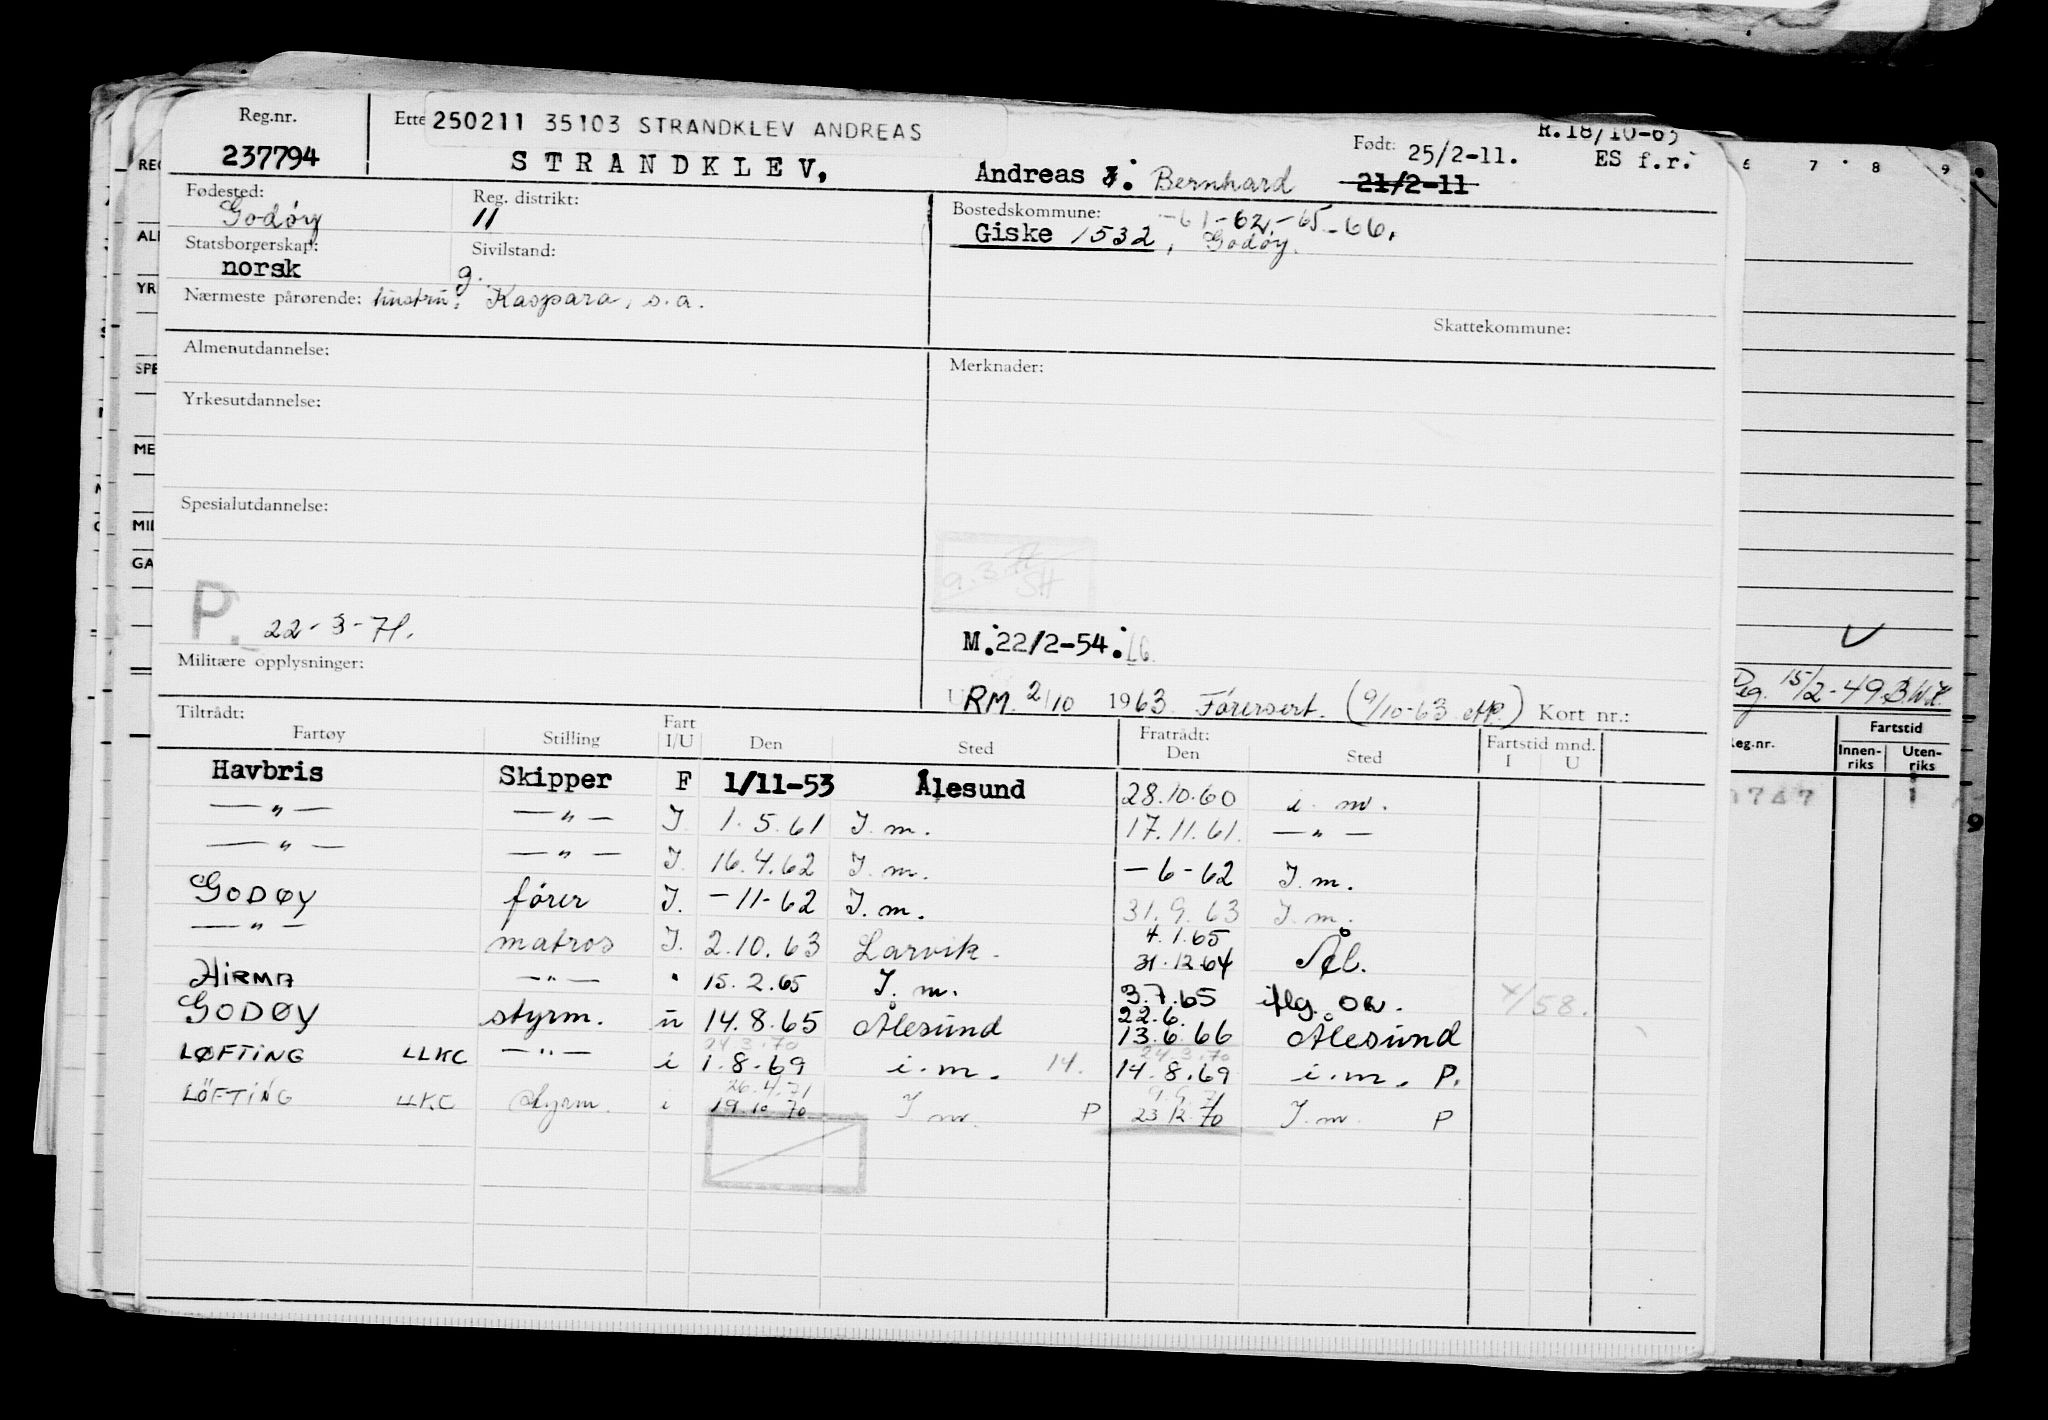 Reg.nr.
237794
Ette 250211 35103 STRANDKLEV ANDREAS
STRANDKLEV, Andreas Bernhard
Født: 25/2-11.
21/2-11
R.18/10-63
ES f.r.
Fødested:
Godøy
Reg. distrikt:
11
Bostedskommune: -61-62,-65-66.
Giske 1532, Godøy.
Statsborgerskap:
norsk
Sivilstand:
g.
Nærmeste pårørende: hustru, Kaspara, s.a.
Skattekommune:
Almenutdannelse:
Merknader:
Yrkesutdannelse:
Spesialutdannelse:
9.3.71
SH
P. 22-3-71.
M.22/2-54.
Militære opplysninger:
RM. 2/10 1963 Førersert. (9/10-63 off.) Kort nr.:
Tiltrådt:
Fratrådt:
Fartøy Stilling Fart I/U Den Sted Den Sted Fartstid mnd. I U
Havbris Skipper F 1/11-53 Ålesund 28.10.60 i. m.
—"— —"— I. 1.5.61 I.m. 17.11.61. —"—
—"— —"— I. 16.4.62 I.m. -6-62 I.m.
GODØY fører I. -11-62 I.m. 31.9.63 I.m.
—"— matros I. 2.10.63 Larvik. 4.1.65
31.12.64 Ål.
HIRMA —"— " 15.2.65 I.m. 3.7.65 iflg. OR. 4/58.
GODØY styrm. u 14.8.65 Ålesund 22.6.
13.6.66 Ålesund
24.3.70 24.3.70
LØFTING LLKC —"— i 1.8.69 i.m. 14. 14.8.69 i.m. P.
26.4.71 9.9.71
LÖFTING LLKC Styrm. i 19.10.70 I.m. P 23.12.70 I.m. P
REG
ALM
YR
SPE
ME
MIL
GA
6 7 8 9
Reg. 15/2-49
eg.nr.
Fartstid
Innen-
riks
Uten-
riks
747
1
9